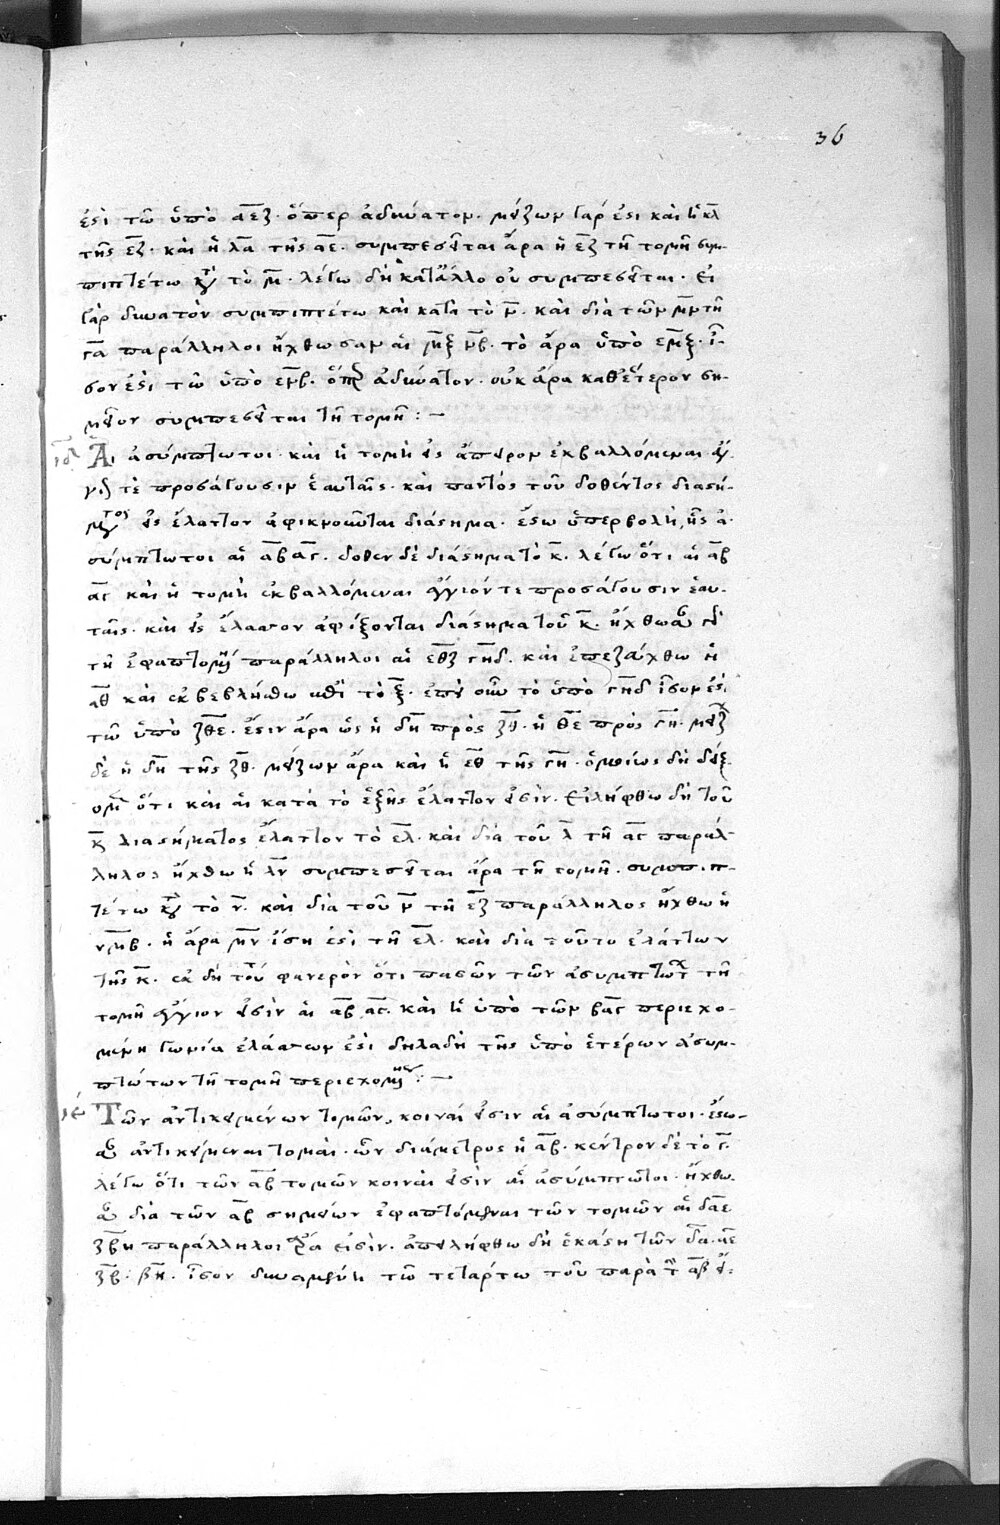 36
ἐστὶ τῶ ὑπὸ α̅ε̅ζ̅· ὅπερ ἀδύνατον· μείζων γάρ ἐστι καὶ ἡ κ̅λ̅
τῆς ε̅ζ̅· καὶ ἡ λ̅α̅ τῆς α̅ε̅· συμπεσεῖται ἄρα ἡ ε̅ζ̅ τῆ τομῆ συμ-
πιπτέτω κατὰ τὸ μ̅· λέγω δὴ κατ' ἄλλο οὐ συμπεσεῖται· εἰ
γὰρ δυνατὸν συμπιπτέτω καὶ κατὰ τὸ ν̅· καὶ διὰ τῶν μ̅ν̅ τῆ
γ̅α̅ παράλληλοι ἤχθωσαν αἱ μ̅ξ̅ ν̅β̅· τὸ ἄρα ὑπὸ ε̅μ̅ξ̅· ἴ-
σον ἐστὶ τῶ ὑπὸ ε̅ν̅β̅· ὅπερ ἀδύνατον· οὐκ ἄρα καθ' ἕτερον ση-
μεῖον συμπεσεῖται τῆ τομῆ : –
ιδ Αἱ ἀσύμπτωτοι καὶ ἡ τομὴ εἰς ἄπειρον ἐκβαλλόμεναι ἔγ-
γιόν τε προσάγουσιν ἑαυταῖς· καὶ παντὸς τοῦ δοθέντος διαστή-
ματος εἰς ἔλαττον ἀφικνοῦνται διάστημα· ἔστω ὑπερβολὴ, ἧς ἀ-
σύμπτωτοι αἱ α̅β̅ α̅γ̅· δοθὲν δὲ διάστημα τὸ κ̅· λέγω ὅτι αἱ α̅β̅
α̅γ̅ καὶ ἡ τομὴ ἐκβαλλόμεναι ἔγγιόν τε προσάγουσιν ἑαυ-
ταῖς· καὶ εἰς ἔλασσον ἀφίξονται διάστημα τοῦ κ̅· ἤχθωσαν γὰρ
τῆ ἐφαπτομένη παράλληλοι αἱ ε̅θ̅ζ̅ γ̅η̅δ̅· καὶ ἐπεζεύχθω ἡ
α̅θ̅ καὶ ἐκβεβλήσθω ἐπὶ τὸ ξ̅· ἐπεὶ οὖν τὸ ὑπὸ γ̅η̅δ̅ ἴσον ἐστὶ
τῶ ὑπὸ ζ̅θ̅ε̅· ἔστιν ἄρα ὡς ἡ δ̅η̅ πρὸς ζ̅θ̅· ἡ θ̅ε̅ πρὸς γ̅η̅· μείζων
δὲ ἡ δ̅η̅ τῆς ζ̅θ̅· μείζων ἄρα καὶ ἡ ε̅θ̅ τῆς γ̅η̅· ὁμοίως δὴ δείξ-
ομεν ὅτι καὶ αἱ κατὰ τὸ ἑξῆς ἔλαττον εἰσὶν· εἰλήφθω δὴ τοῦ
κ̅ διαστήματος ἔλαττον τὸ ε̅λ̅· καὶ διὰ τοῦ λ̅ τῆ α̅γ̅ παράλ-
ληλος ἤχθω ἡ λ̅ν̅ συμπεσεῖται ἄρα τῆ τομῆ· συμπιπ-
τέτω κατὰ τὸ ν̅· καὶ διὰ τοῦ ν̅ τῆ ε̅ζ̅ παράλληλος ἤχθω ἡ
ν̅μ̅β̅· ἡ ἄρα μ̅ν̅ ἴση ἐστὶ τῆ ε̅λ̅· καὶ διὰ τοῦτο ἐλάττων
τῆς κ̅· ἐκ δὴ τούτου φανερὸν ὅτι πασῶν τῶν ἀσυμπτώτων τῆ
τομῆ ἔγγιον εἰσὶν αἱ α̅β̅ α̅γ̅· καὶ ἡ ὑπὸ τῶν β̅α̅γ̅ περιεχο-
μένη γωνία ἐλάσσων ἐστὶ δηλαδὴ τῆς ὑπὸ ἑτέρων ἀσυμ-
πτώτων τῆ τομῆ περιεχομένης : –
ιε Τῶν ἀντικειμένων τομῶν, κοιναί εἰσιν αἱ ἀσύμπτωτοι· ἔστω-
σαν ἀντικείμεναι τομαὶ· ὧν διάμετρος ἡ α̅β̅· κέντρον δὲ τὸ γ̅·
λέγω ὅτι τῶν α̅β̅ τομῶν κοιναί εἰσὶν αἱ ἀσύμπτωτοι· ἤχθω-
σαν διὰ τῶν α̅β̅ σημείων ἐφαπτόμεναι τῶν τομῶν αἱ δ̅α̅ε̅
ζ̅β̅η̅ παράλληλοι ἄρα εἰσὶν· ἀπειλήφθω δὴ ἑκάστη τῶν δ̅α̅· α̅ε̅
ζ̅β̅· β̅η̅· ἴσον δυναμένη τῶ τετάρτω τοῦ παρὰ τὴν α̅β̅ εἴ-